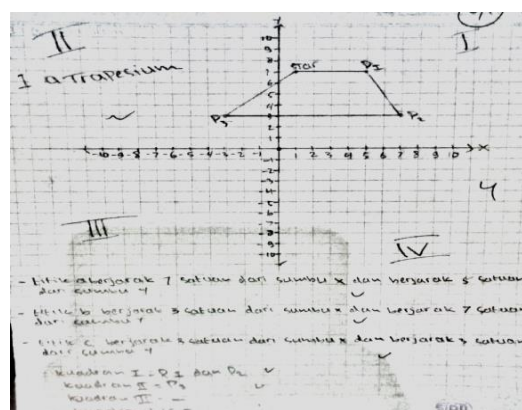 II
I
I a Trapesium
star
P1
P2
P3
-10 -9 -8 -7 -6 -5 -4 -3 -2 -1 1 2 3 4 5 6 7 8 9 10 x
4
III
IV
- titik a berjarak 7 satuan dari sumbu x dan berjarak 5 satuan
dari sumbu y
- titik b berjarak 3 satuan dari sumbu x dan berjarak 7 satuan
dari sumbu y
- titik c berjarak 3 satuan dari sumbu x dan berjarak 3 satuan
dari sumbu y
kuadran I = P1 dan P2
kuadran II = P3
kuadran III = -